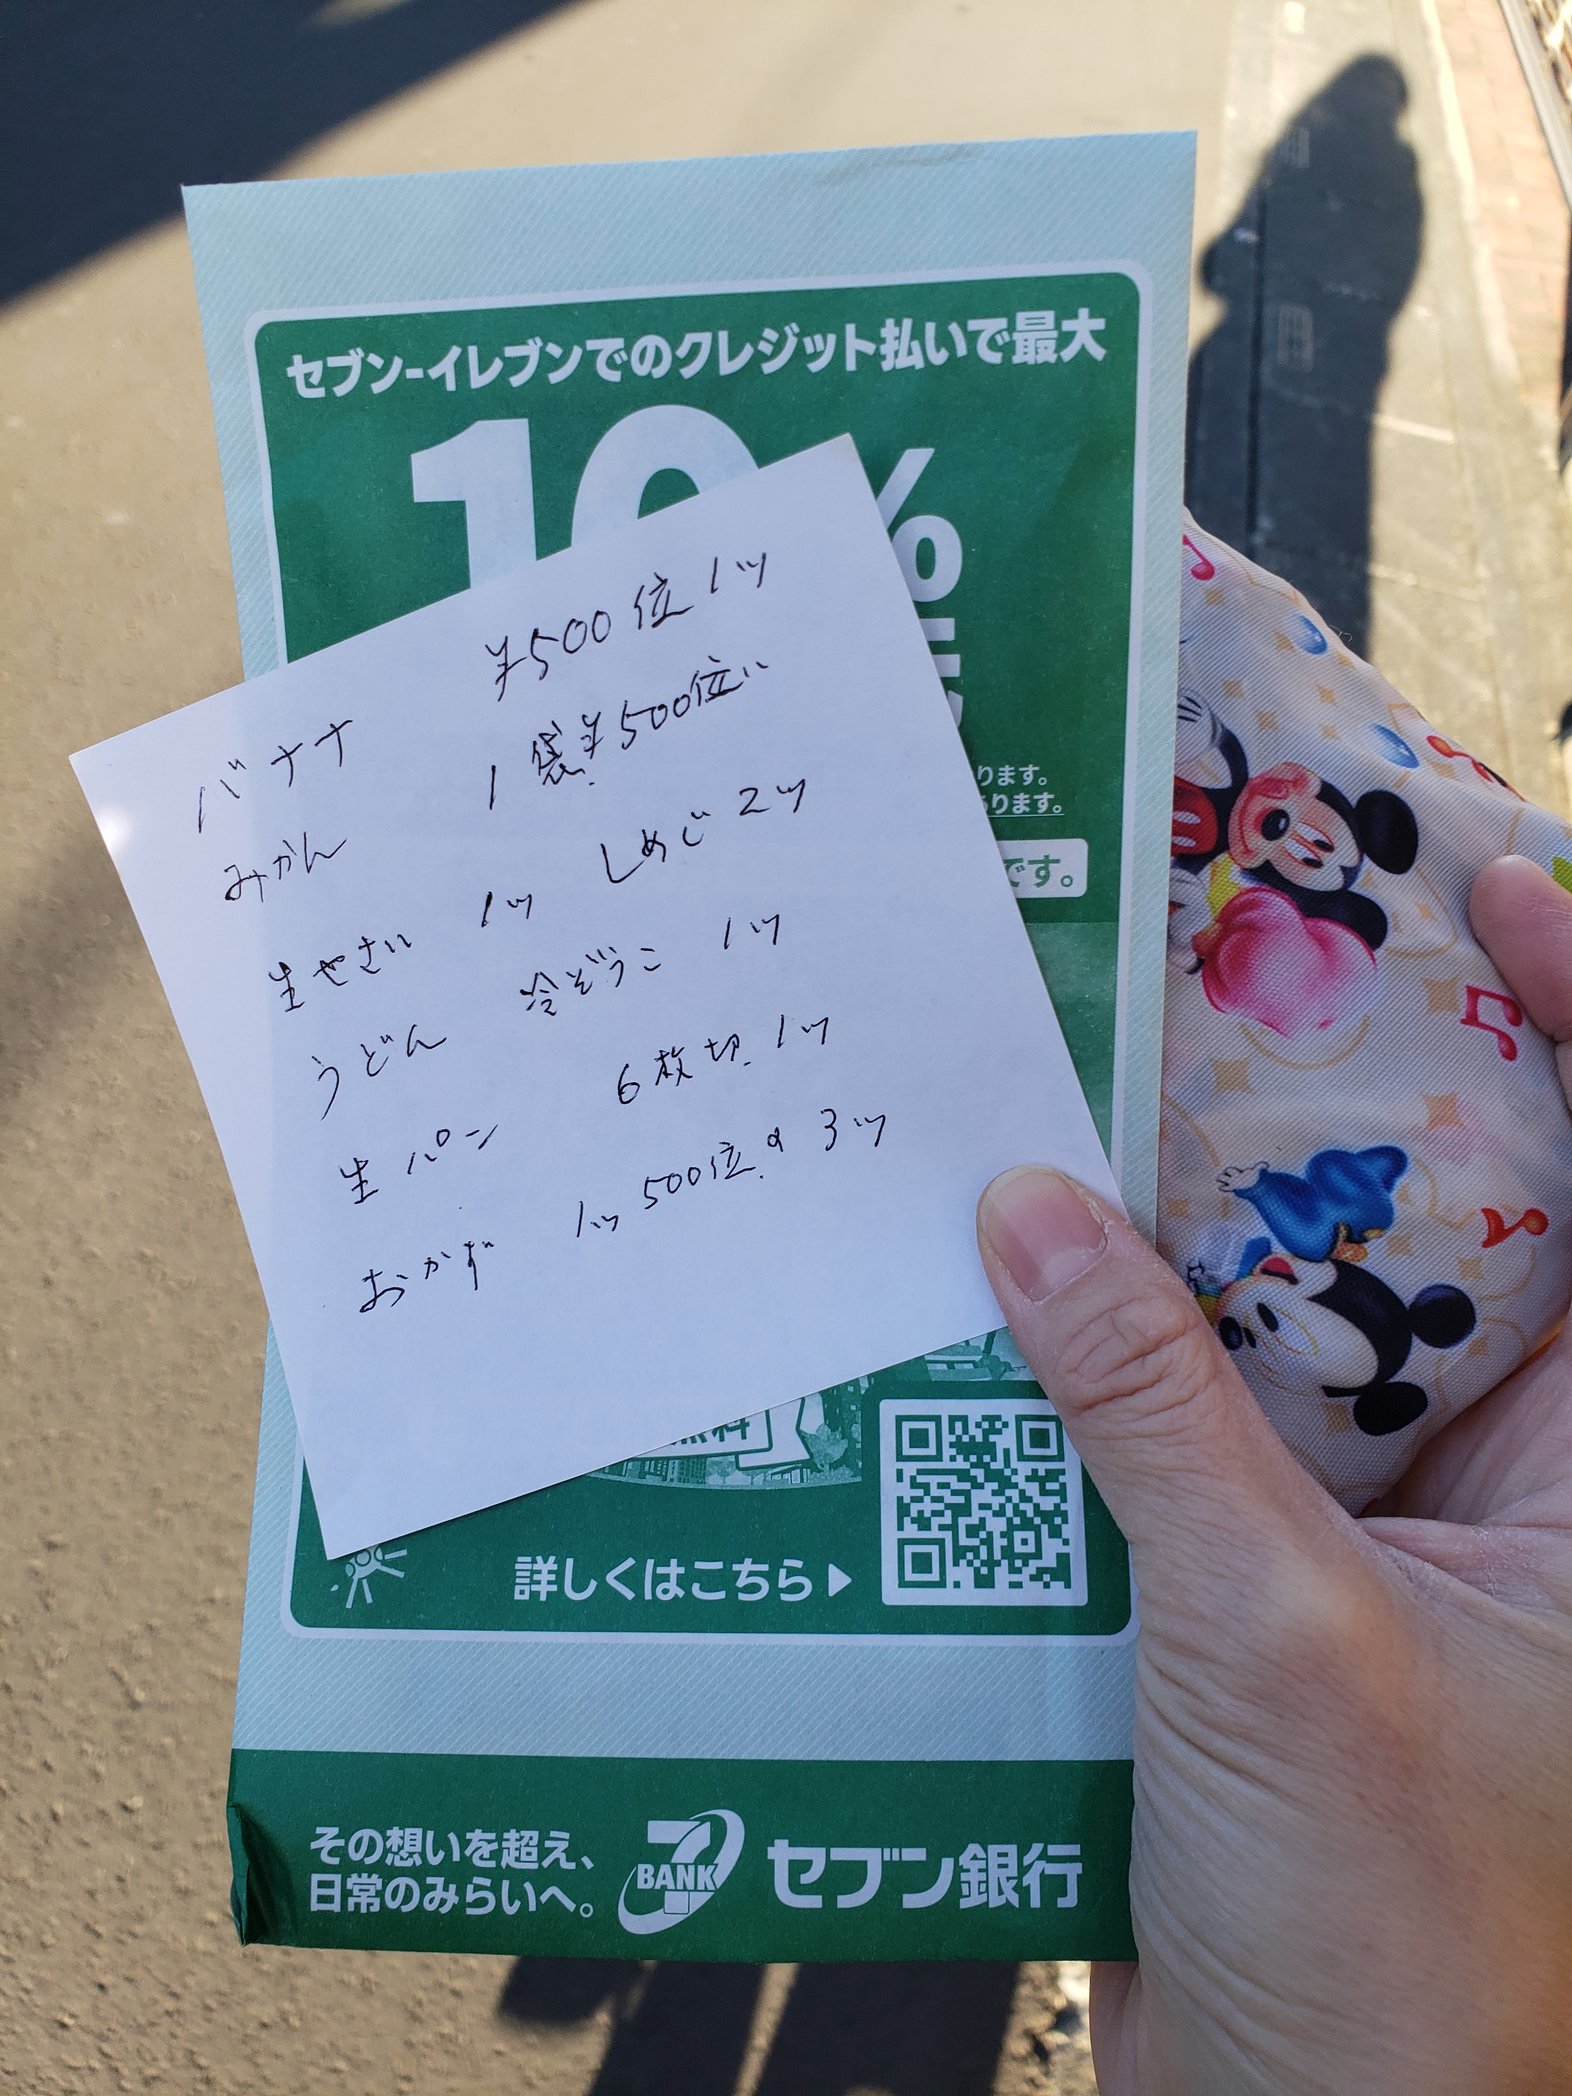 セブン-イレブンでのクレジット払いで最大
10%
ります。
あります。
です。
バナナ ¥500位1ツ
みかん 1袋¥500位
生やさい 1ツ しめじ2ツ
うどん 冷ぞうこ 1ツ
生パン 6枚切 1ツ
おかず 1ツ 500位の 3ツ
無料
詳しくはこちら▶
その想いを超え、
日常のみらいへ。
7 BANK
セブン銀行